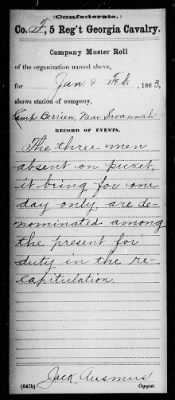 (Confederate.)
Co. F, 5 Reg't Georgia Cavalry.
Company Muster Roll
of the organization named above,
for Jan & Feb., 1863,
above station of company.
Camp Berrien, Near Savannah
RECORD OF EVENTS.
The three men
absent on picket
it being for one
day only are de-
nominated among
the present for
duty in the re-
capitulation.
(641b) Jack Ausmus
Copyist.